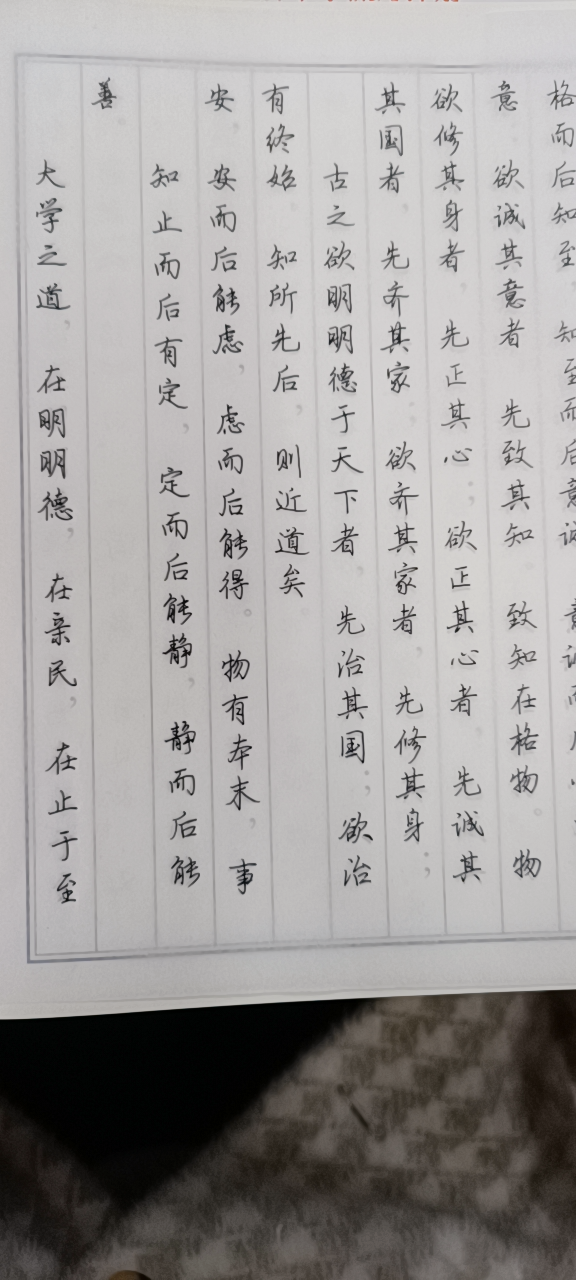 大学之道，在明明德，在亲民，在止于至
善
知止而后有定，定而后能静，静而后能
安 安而后能虑，虑而后能得。物有本末，事
有终始 知所先后，则近道矣
古之欲明明德于天下者，先治其国；欲治
其国者，先齐其家；欲齐其家者，先修其身；
欲修其身者，先正其心；欲正其心者，先诚其
意 欲诚其意者，先致其知 致知在格物。物
格而后知至，知至而后意诚 意诚而后心